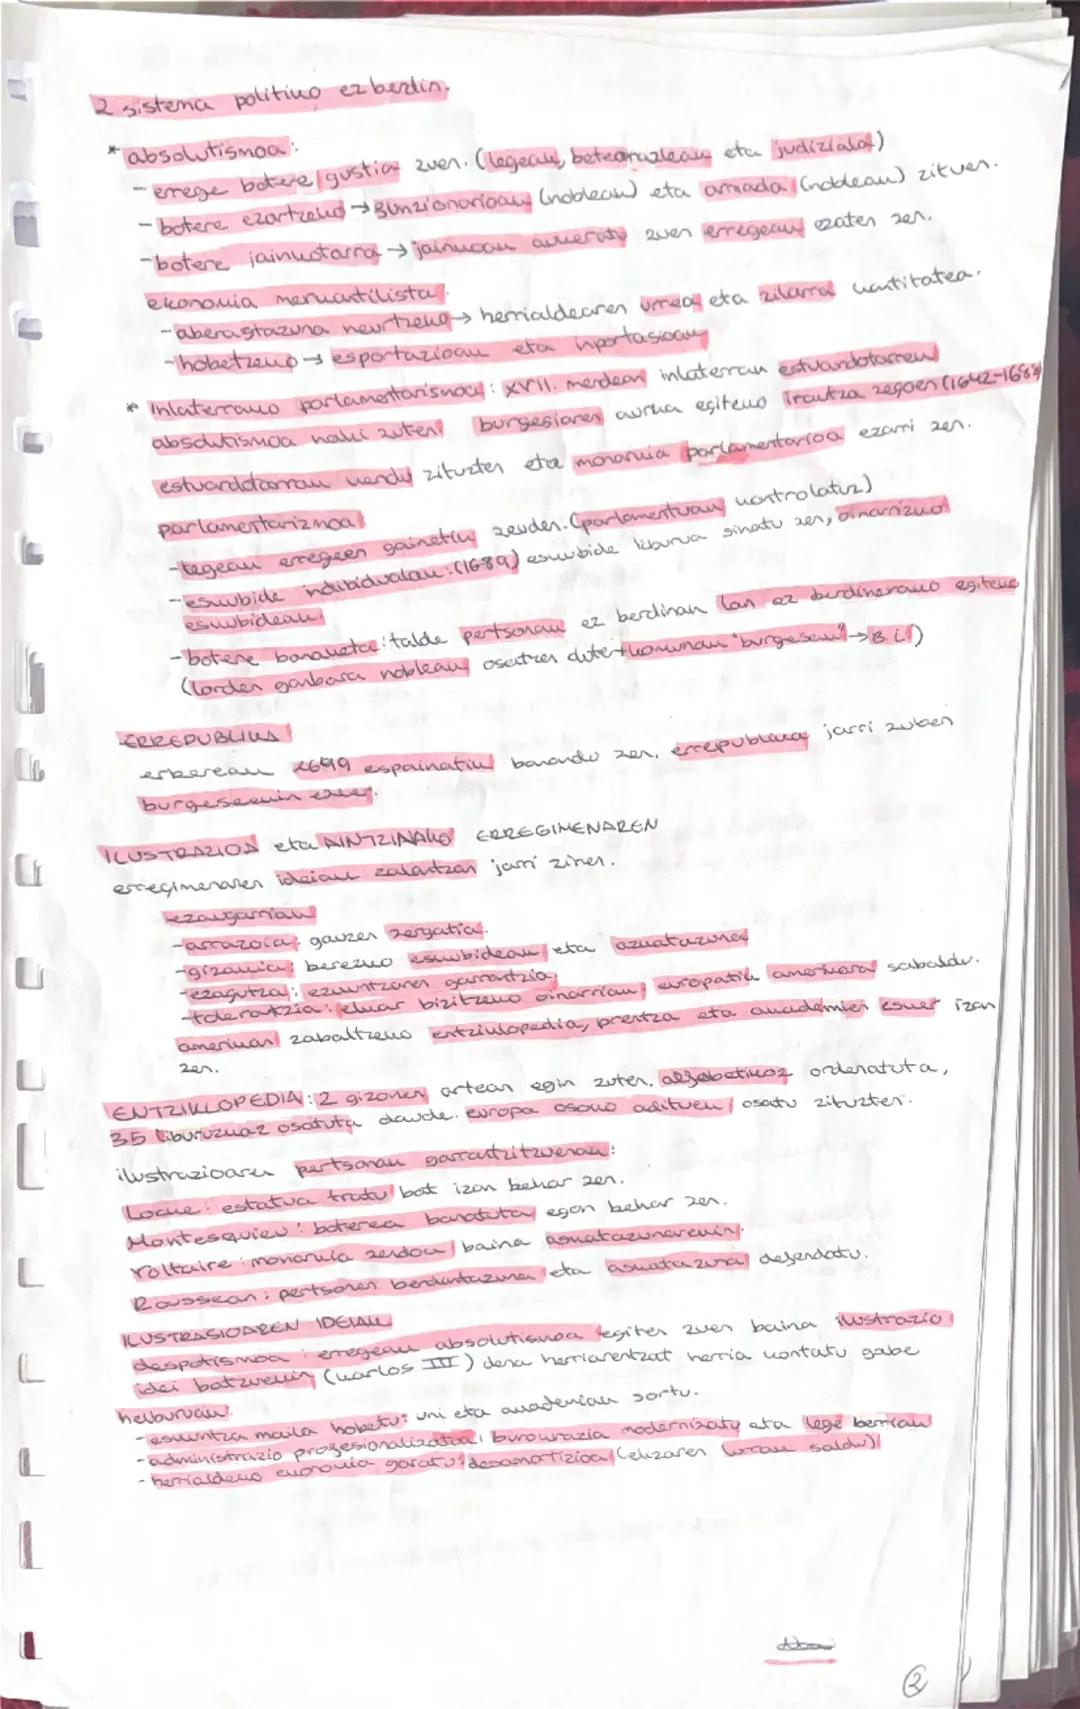 2 sistema politiko ezberdin.
* absolutismoa:
- errege botere guztia zuen. (legeak, betearazleak eta judiziala)
- botere ezartzeko → funzionarioak (nobleak) eta armada (nobleak) zituen.
- botere jainkotarra → jainkoak aukeratu zuen erregeak ezaten zen.
ekonomia merkantilista:
- aberastazuna neurtzeko → herrialdearen urrea eta zilarra kantitatea.
- hobetzeko → esportazioak eta inportasioak
* Inlaterrako parlamentarismoa: XVII. mendean inlaterran estuardotarrek
absolutismoa nahi zuten. burgesiaren aurka egiteko iraultza zegoen (1642-1688)
estuardotarrak kendu zituzten eta monarkia parlamentarioa ezarri zen.
parlamentarizmoa:
- legeak erregeen gainetik zeuden. (parlamentuak kontrolatuz)
- eskubide indibidualak: (1689) eskubide liburua sinatu zen, oinarrizko
eskubideak.
- botere banaketa: talde pertsonak ez berdinak lan ez berdinerako egiteko
(lorden ganbara nobleak osatzen dute + komunak "burgesek" → B.L)
ERREPUBLIKA
erbereak 1649 espainatik banandu zen, errepublika jarri zuben
burgeseekin
ILUSTRAZIOA eta AINTZINAKO ERREGIMENAREN
erregimenaren ideiak zalantzan jarri ziren.
ezaugarriak
- arrazoia: gauzen zergatia.
- gizakia: berezko eskubideak eta azkatazuna
- ezagutza: ezkuntzaren garrantzia
- tolerantzia: elkar bizitzeko oinarriak, europatik amerikara sabaldu.
amerikan zabaltzeko entziklopedia, prentza eta akademien esker izan
zen.
ENTZIKLOPEDIA: 2 gizonen artean egin zuten. alfabetikoz ordenatuta,
35 liburuzkaz osatuta daude. europa osoko adituek osatu zituzten.
ilustrazioaren pertsonak garrantzitzuenak:
Locke: estatua tratu bat izan behar zen.
Montesquieu: boterea banatuta egon behar zen.
Voltaire: monarkia zendoa baina askatazunarekin.
Roussean: pertsonen berdintazuna eta askatazuna defendatu.
ILUSTRASIOAREN IDEIAK
despotismoa: erregeak absolutismoa egiten zuen baina ilustrazio
idei batzuekin (karlos III) dena herriarentzat herria kontatu gabe
helburuak.
- eskuntza maila hobetu: uni eta akademiak sortu.
- administrazio profesionalizatua, burokrazia modernizatu eta lege berriak
- herrialdeko ekonomia garatu: desamortizioa (elizaren lurrak saldu)
2